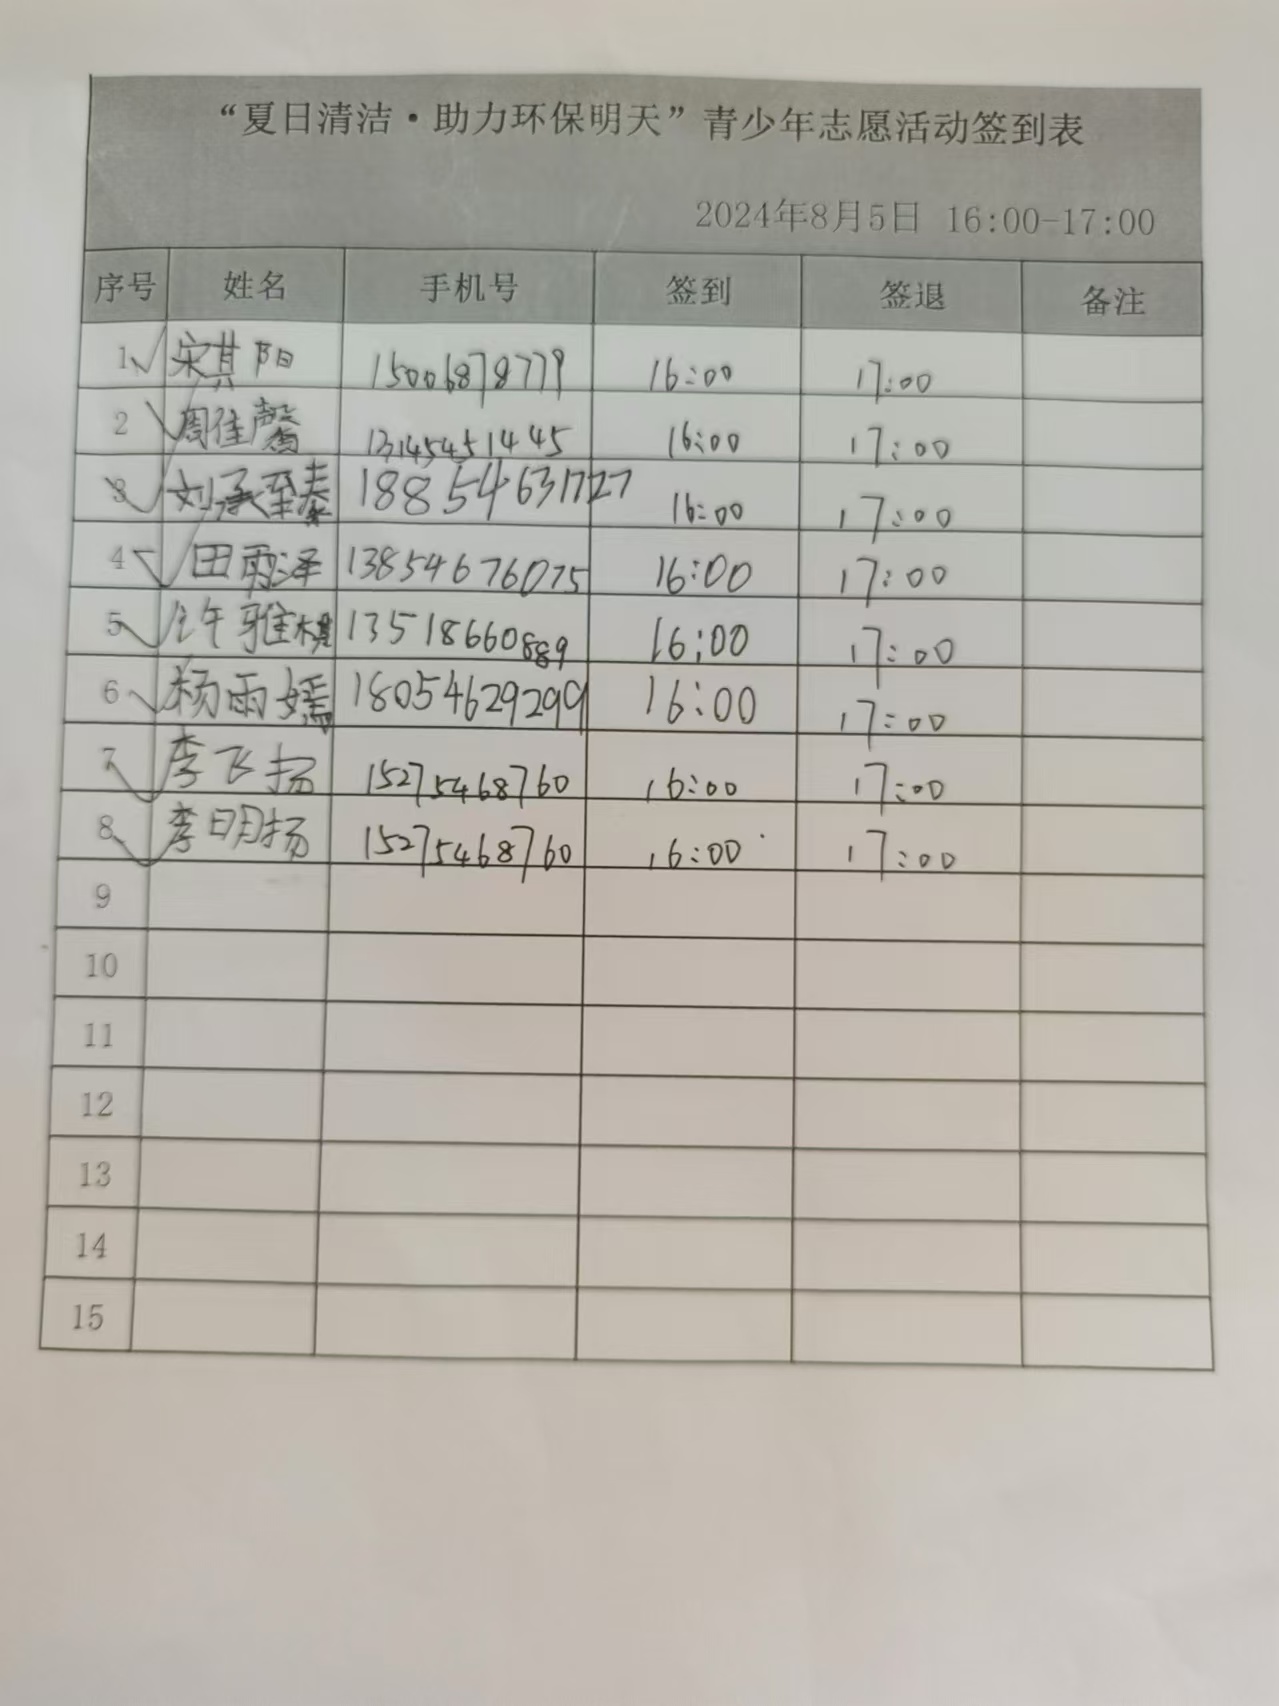 “夏日清洁·助力环保明天”青少年志愿活动签到表
2024年8月5日 16:00-17:00
序号 姓名 手机号 签到 签退 备注
1 宋其阳 15006878779 16:00 17:00
2 周佳馨 13145451445 16:00 17:00
3 刘承至泰 18854631727 16:00 17:00
4 田雨泽 13854676075 16:00 17:00
5 许雅棋 13518660889 16:00 17:00
6 杨雨嫣 18054629299 16:00 17:00
7 李飞扬 15275468760 16:00 17:00
8 李明扬 15275468760 16:00 17:00
9
10
11
12
13
14
15